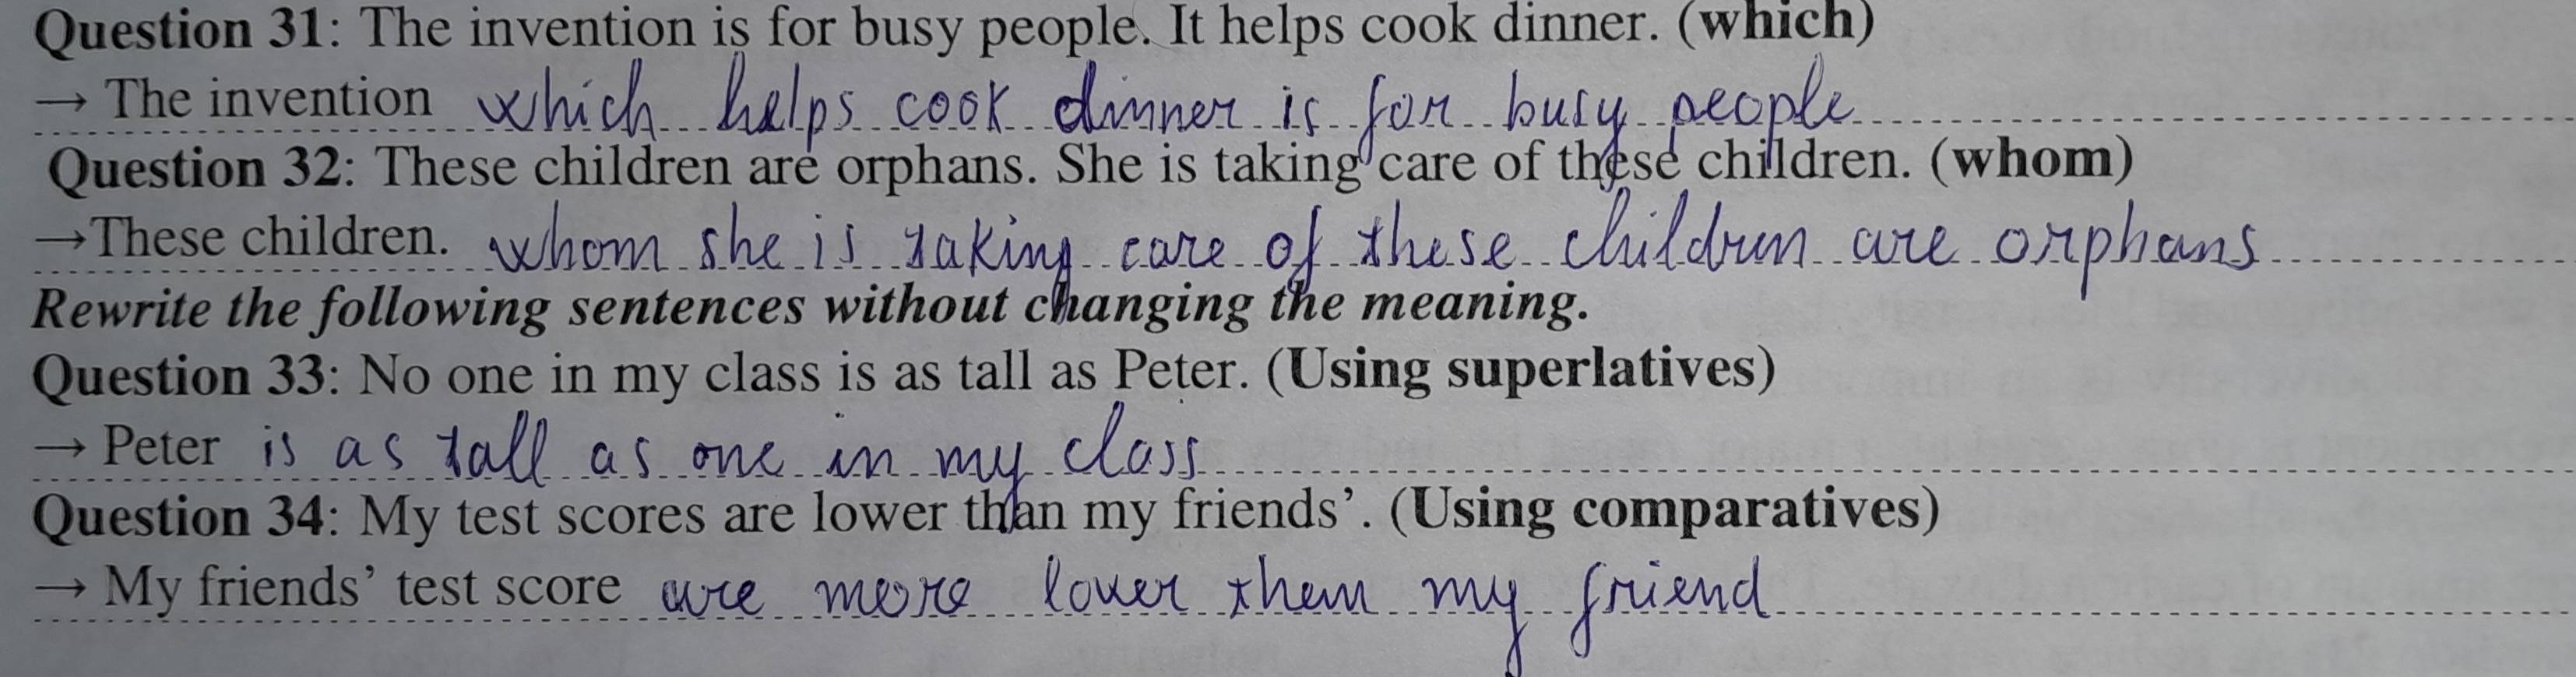 Question 31: The invention is for busy people. It helps cook dinner. (which)
→ The invention which helps cook dinner is for busy people
Question 32: These children are orphans. She is taking care of these children. (whom)
→These children. whom she is taking care of these children are orphans
Rewrite the following sentences without changing the meaning.
Question 33: No one in my class is as tall as Peter. (Using superlatives)
→ Peter is as tall as one in my class
Question 34: My test scores are lower than my friends’. (Using comparatives)
→ My friends’ test score are more lower them my friend